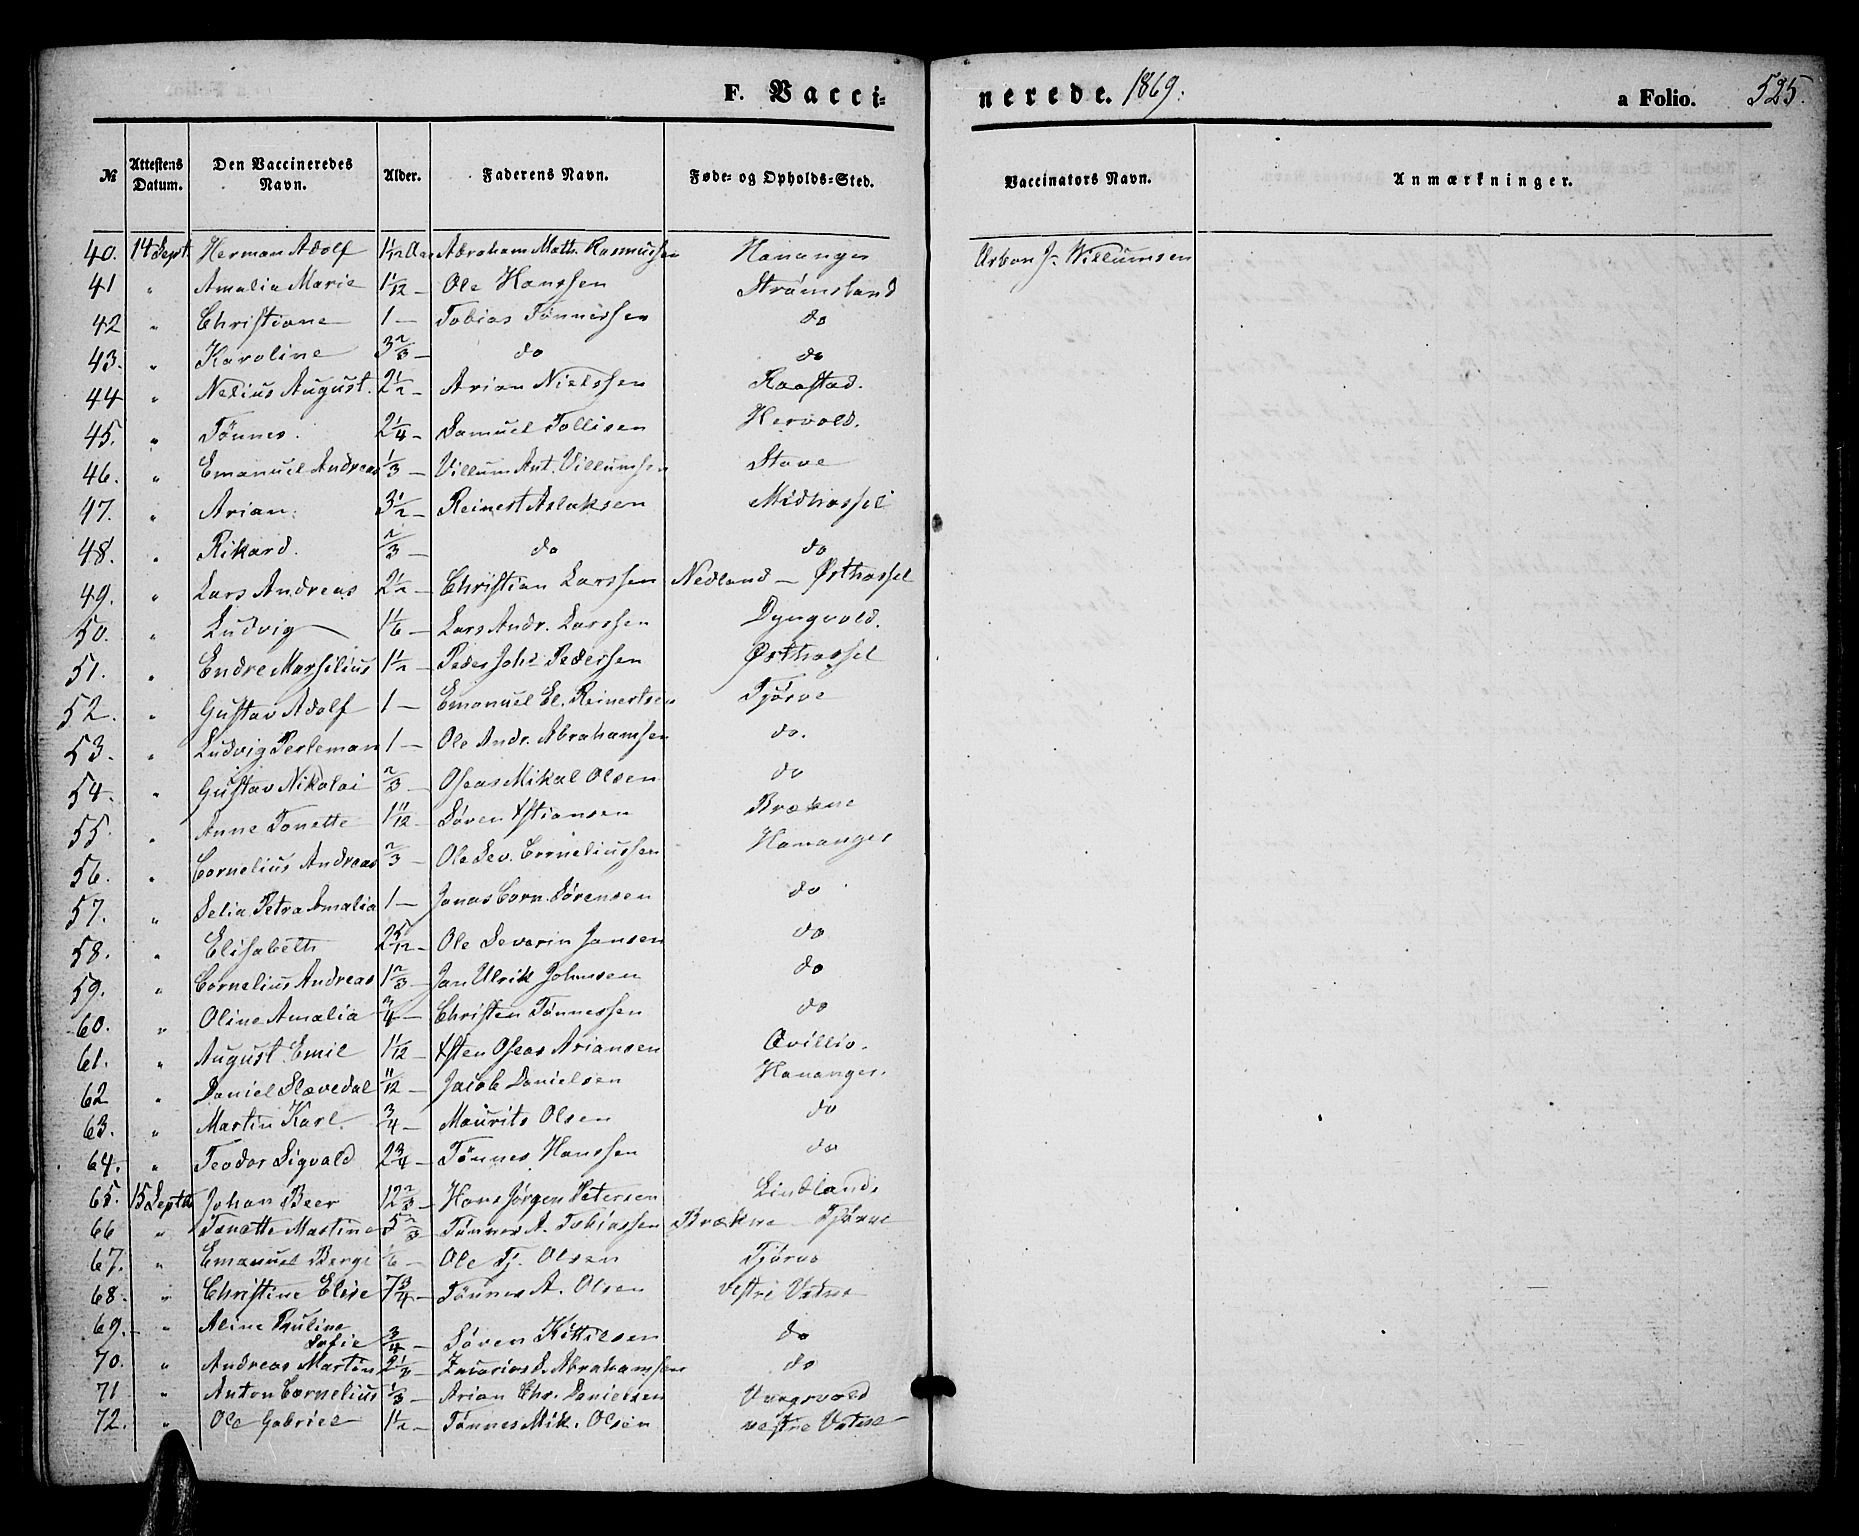 F. Vacci-
nerede. 1869.
a Folio. 525.
№ Attestens Datum. Den Vaccineredes Navn. Alder. Faderens Navn. Føde- og Opholds-Sted. Vaccinators Navn. Anmærkninger.
40. 14 Sept. Herman Adolf 1 1/2 Aar Abraham Math. Rasmussen Hananger Urban J. Willumsen
41 " Amalia Marie 1 1/12 Ole Hanssen Strømsland
42 " Christiane 1 — Tobias Tønnessen do
43. " Karoline 3 2/3 — do do
44 " Nelius August. 2 1/2 — Arian Nielssen Raastad.
45. " Tønnes. 2 1/4 — Samuel Tollisen Hervold.
46. " Emanuel Andreas 1/3 — Villum Ant. Villumsen Stave
47. " Arian. 3 1/2 — Reinert Aslaksen Midhassel
48. " Rikard. 2/3 — do do
49. " Lars Andreas 2 1/2 — Christian Larssen Nedland — Østhassel
50. " Ludvig 1 1/6 — Lars Andr. Larssen Dyngvold.
51. " Endre Marsilius 1 1/2 — Peder Johs Pedersen Østhassel
52. " Gustav Adolf 1 — Emanuel El. Reinertsen Tjørve
53. " Ludvig Perleman 1 — Ole Andr. Abrahamsen do.
54. " Gustav Nikolai 2/3 — Oseas Mikal Olsen do
55. " Anne Tonette 1 11/12 — Søren Xstiansen Brækne
56. " Cornelius Andreas 2/3 — Ole Sev. Corneliussen Hananger
57. " Selia Petra Amalia 1 — Jonas Corn. Sørensen do
58. " Elisabeth 2 5/12 — Ole Severin Jansen do
59. " Cornelius Andreas 1 2/3 — Jan Ulrik Johnsen do
60. " Oline Amalia 3/4 — Christen Tønnessen do
61. " August Emil 1 1/12 — Xsten Oseas Ariansen Qvillio.
62 " Daniel Slævedal 11/12 — Jacob Danielsen Hananger.
63. " Martin Karl. 3/4 — Maurits Olsen do
64. " Teodor Sigvald 2 3/4 — Tønnes Hanssen do
65. 15 Septbr Johan Beer 12 2/3 — Hans Jørgen Petersen Lindland
66 " Tonette Martine 5 2/3 Tønnes A. Tobiassen Brækne — Tjørve
67. " Emanuel Bergi 1/6 — Ole Tj. Olsen Tjørve
68. " Christine Elise 7 3/4 — Tønnes A. Olsen Vestre Vatne
69. — " Aline Pauline
Sofie 3/4 — Søren Kittilsen do
70. " Andreas Martin 2 1/3 — Zacarias A. Abrahamsen do
71 " Anton Cornelius 1/3 — Arian Chr. Danielsen Vragevold
72. " Ole Gabriel 1 1/2 — Tønnes Mik. Olsen vestre Vatne